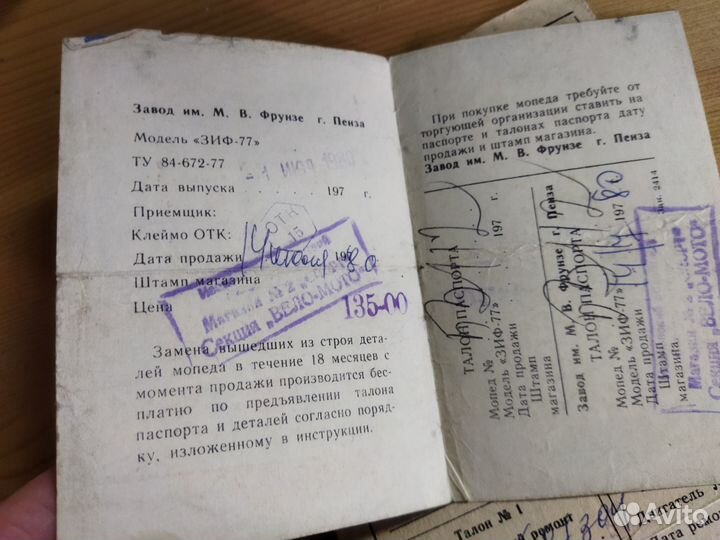 Завод им. М. В. Фрунзе г. Пенза
Модель «ЗИФ-77»
ТУ 84-672-77
Дата выпуска -1 1980 197 г.
Приемщик:
Клеймо ОТК: ОТК 15
Дата продажи 14 197 80
Штамп магазина
Магазин № 2
Секция „ВЕЛО-МОТО"
Цена 135-00
Замена вышедших из строя дета-
лей мопеда в течение 18 месяцев с
момента продажи производится бес-
платно по предъявлении талона
паспорта и деталей согласно поряд-
ку, изложенному в инструкции.
При покупке мопеда требуйте от
торгующей организации ставить на
паспорте и талонах паспорта дату
продажи и штамп магазина.
Завод им. М. В. Фрунзе г. Пенза
ТАЛОН ПАСПОРТА
Мопед №
Модель «ЗИФ-77»
Дата продажи 197 г.
Штамп
магазина
Завод им. М. В. Фрунзе г. Пенза
ТАЛОН ПАСПОРТА
Мопед №
Модель «ЗИФ-77»
Дата продажи 197 80
Штамп
магазина.
Магазин № 2
Секция „ВЕЛО-МОТО"
Зак. 2414
Талон № 1
ремонт
Двигатель
Дата ремон
Avito